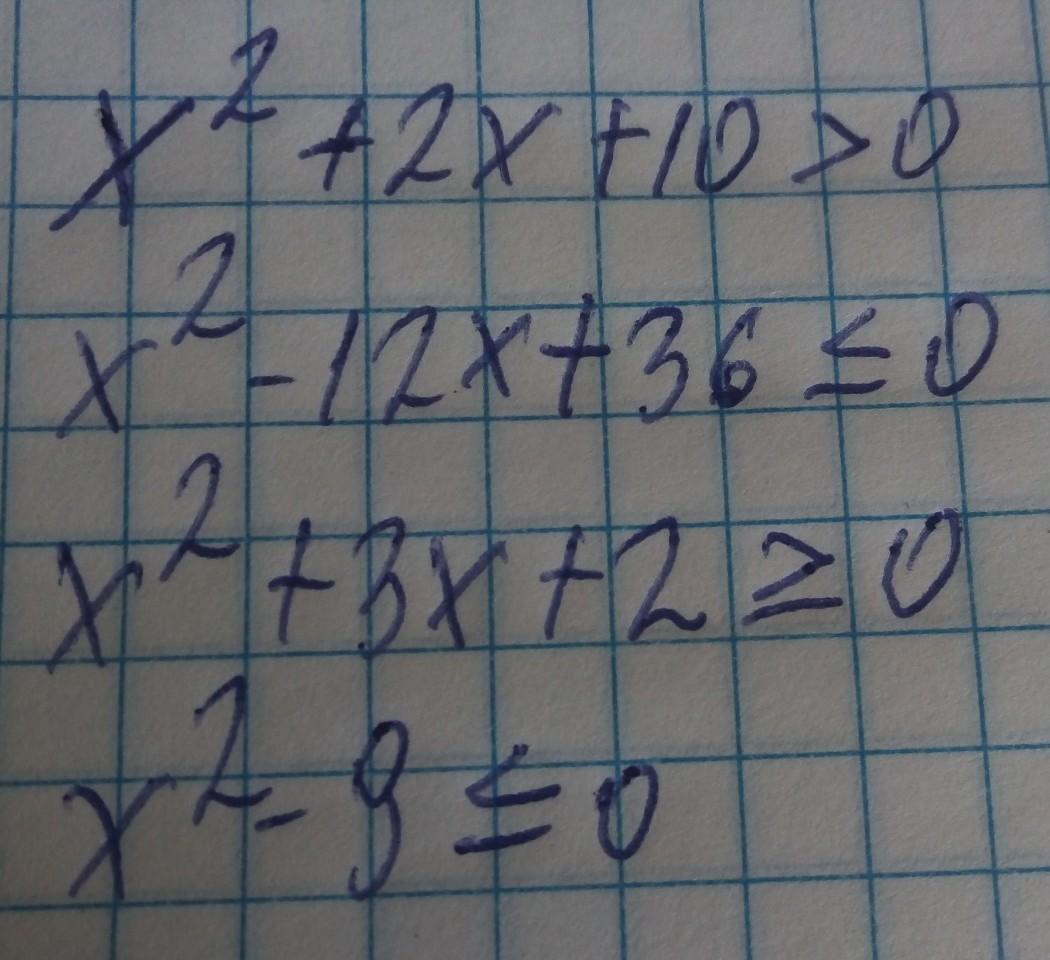 x² + 2x + 10 > 0
x² - 12x + 36 ≤ 0
x² + 3x + 2 ≥ 0
x² - 9 ≤ 0